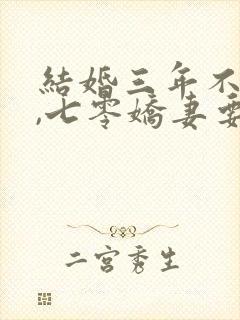 結婚三年不
,七零嬌妻要
二宮秀生